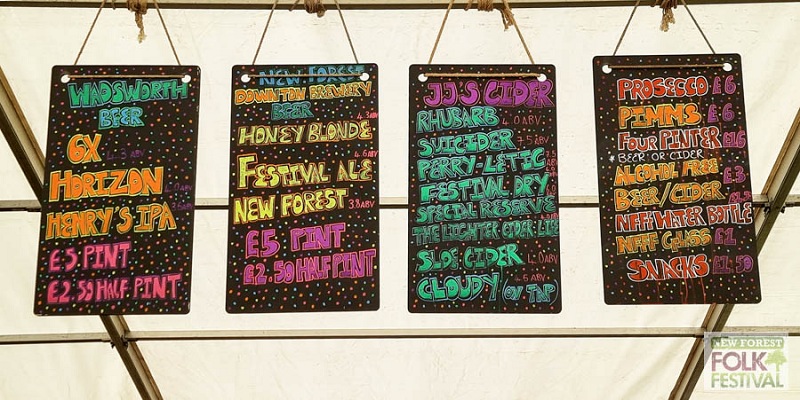 WADSWORTH
BEER
6X
HORIZON
HENRY'S IPA
£5 PINT
£2.50 HALF PINT
NEW FOREST
DOWNTON BREWERY
BEER
HONEY BLONDE
FESTIVAL ALE
NEW FOREST 3.8 ABV
£5 PINT
£2.50 HALF PINT
JJ'S CIDER
RHUBARB 4.0 ABV
SUICIDER 7.5 ABV
PERRY-LETIC
FESTIVAL DRY
SPECIAL RESERVE
THE LIGHTER CIDER
SLOE CIDER 4.0 ABV
CLOUDY ON TAP
PROSECCO £6
PIMMS £6
FOUR PINTER £16
*BEER OR CIDER
ALCOHOL FREE
BEER/CIDER £3
NFFF WATER BOTTLE
NFFF GLASS £1
SNACKS £1.50
NEW FOREST
FOLK
FESTIVAL